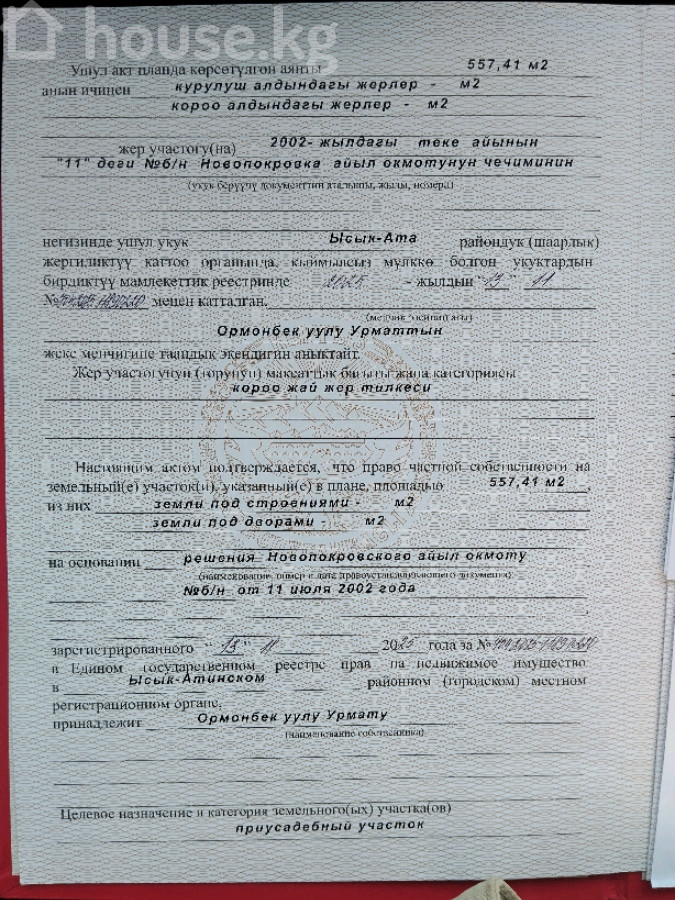 house.kg
Ушул акт планда көрсөтүлгөн аянты 557,41 м2
анын ичинен курулуш алдындагы жерлер - м2
короо алдындагы жерлер - м2
жер участогу(на) 2002- жылдагы теке айынын
"11" деги №б/н Новопокровка айыл окмотунун чечиминин
(укук берүүчү документтин аталышы, жылы, номери)
негизинде ушул укук Ысык-Ата райондук (шаарлык)
жергиликтүү каттоо органында, кыймылсыз мүлккө болгон укуктардын
бирдиктүү мамлекеттик реестринде 2025 - жылдын "13" 11
№ менен катталган,
(менчик ээсинин аты)
Ормонбек уулу Урматтын
жеке менчигине таандык экендигин аныктайт.
Жер участогунун (торунун) максаттык багыты жана категориясы
короо жай жер тилкеси
Настоящим актом подтверждается, что право частной собственности на
земельный(е) участок(и), указанный(е) в плане, площадью 557,41 м2
из них земли под строениями - м2
земли под дворами - м2
на основании решения Новопокровского айыл окмоту
(наименование, номер и дата правоустанавливающего документа)
№б/н от 11 июля 2002 года
зарегистрированного "13" 11 2025 года за №
в Едином государственном реестре прав на недвижимое имущество
в Ысык-Атинском районном (городском) местном
регистрационном органе,
принадлежит Ормонбек уулу Урмату
(наименование собственника)
Целевое назначение и категория земельного(ых) участка(ов)
приусадебный участок